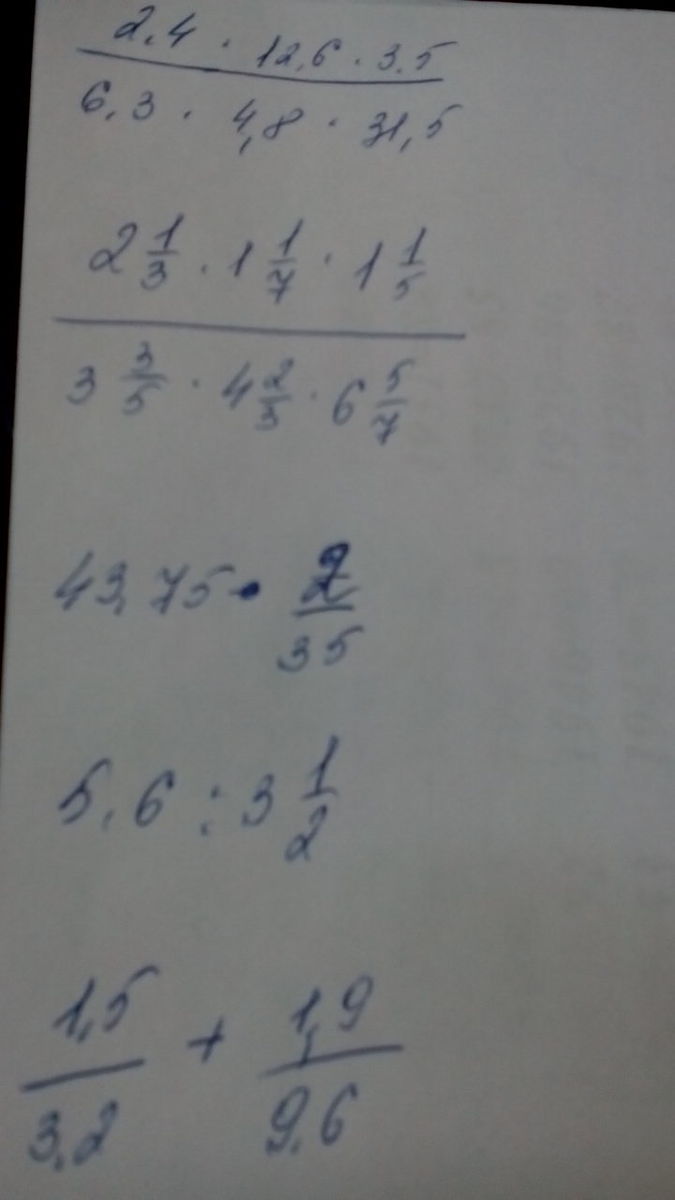 2,4 · 12,6 · 3,5
6,3 · 4,8 · 31,5
2 1/3 · 1 1/7 · 1 1/5
3 3/5 · 4 2/3 · 6 5/7
43,75 · 2/35
5,6 : 3 1/2
1,5/3,2 + 1,9/9,6